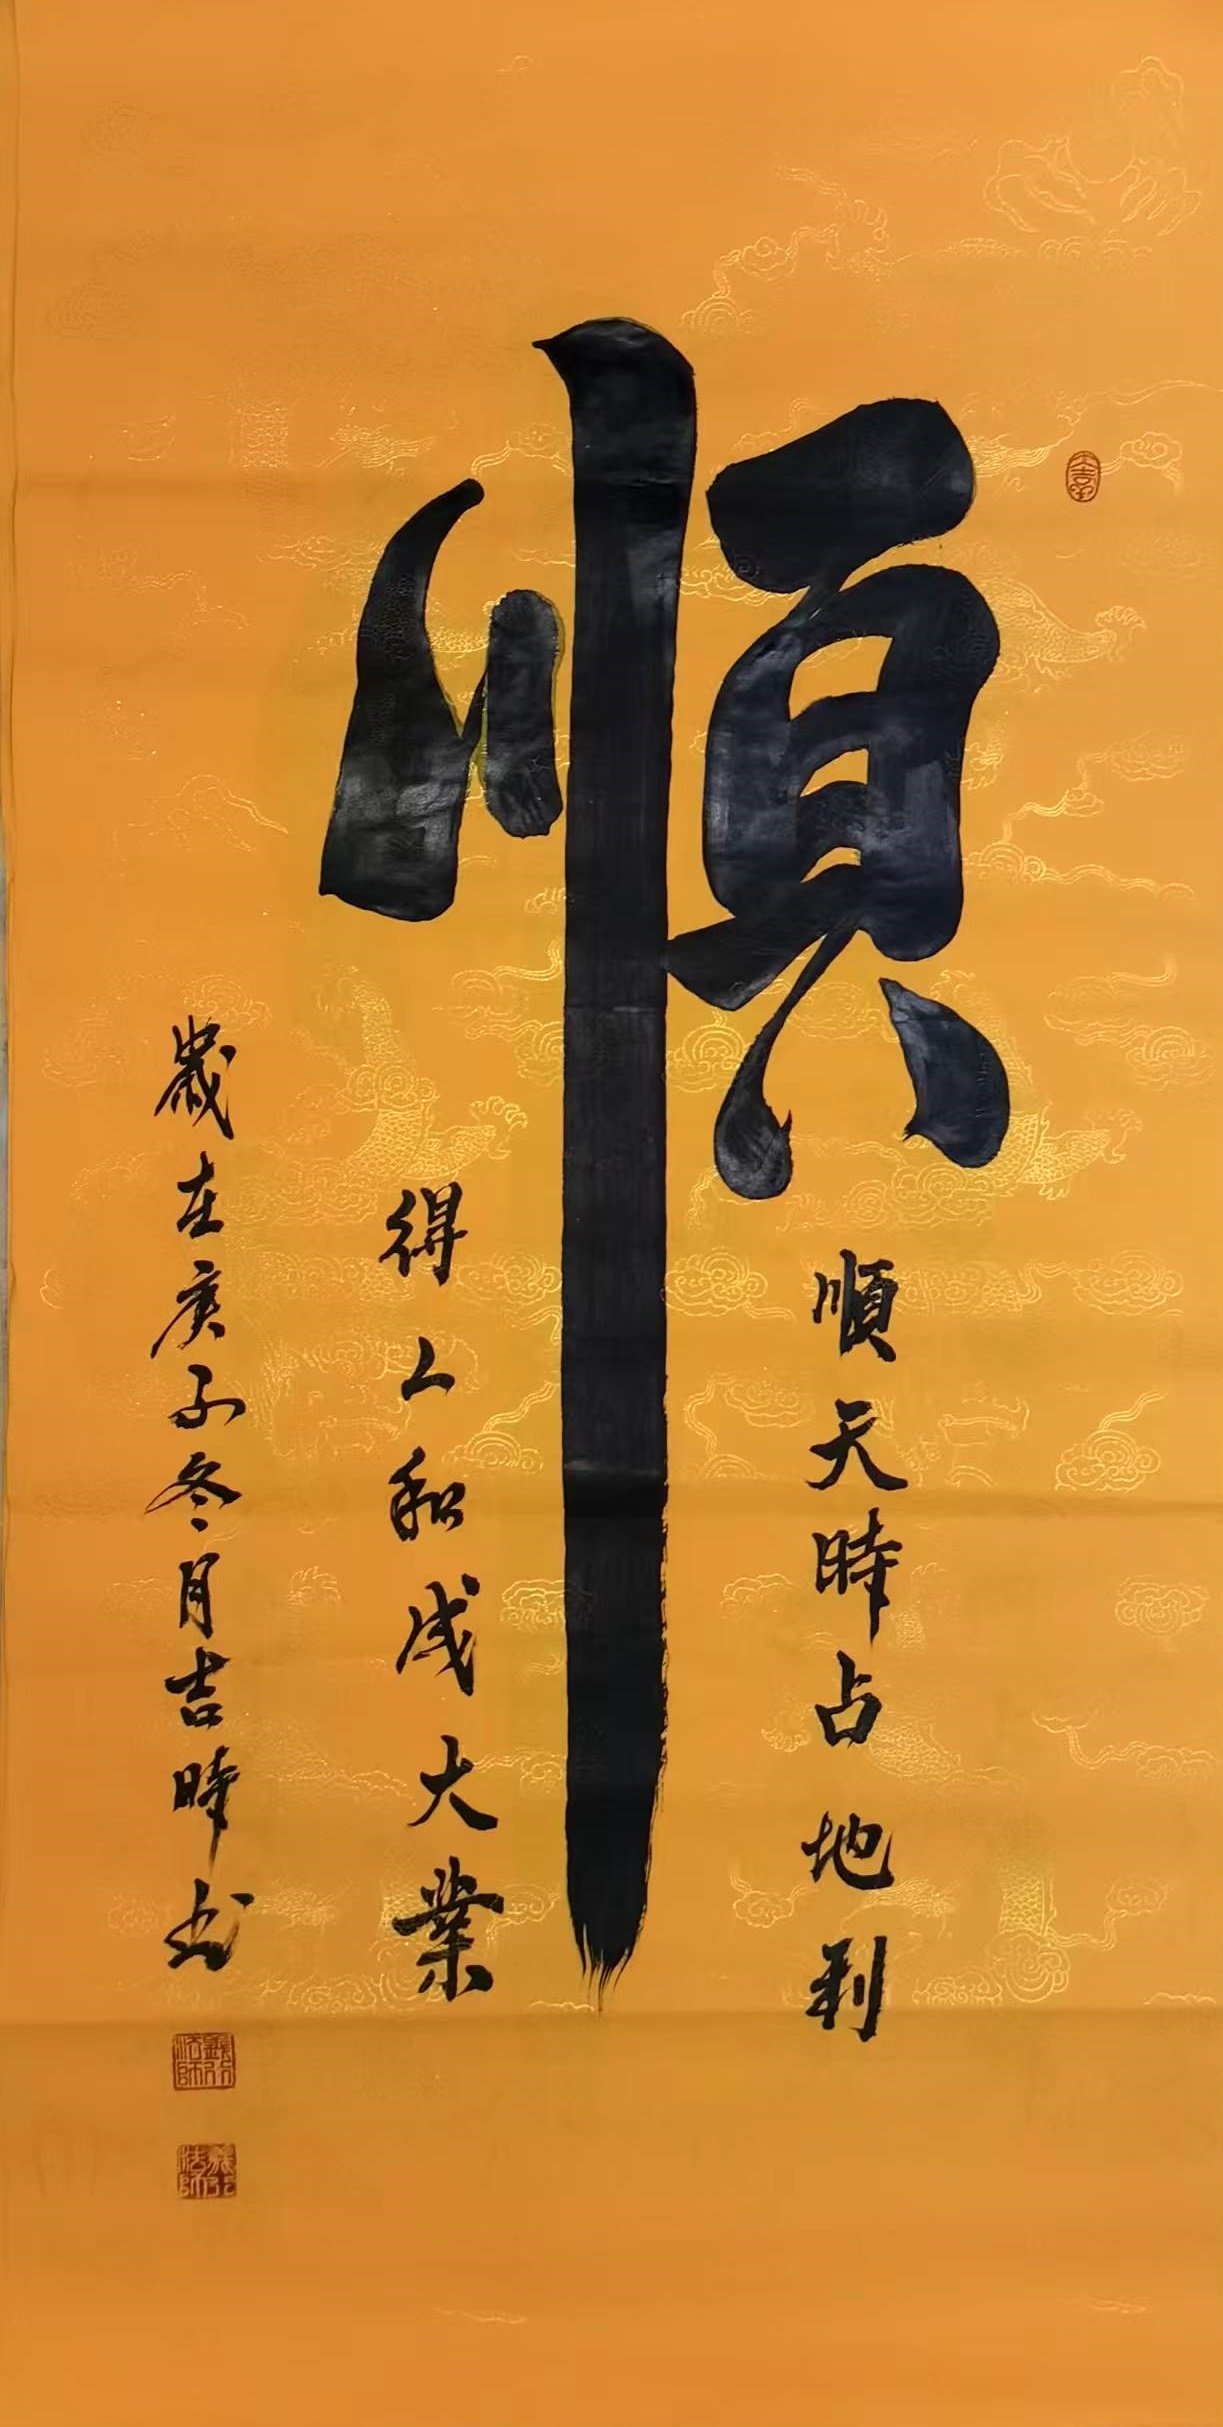 順
順天時占地利
得人和成大業
歲在庚子冬月吉時書